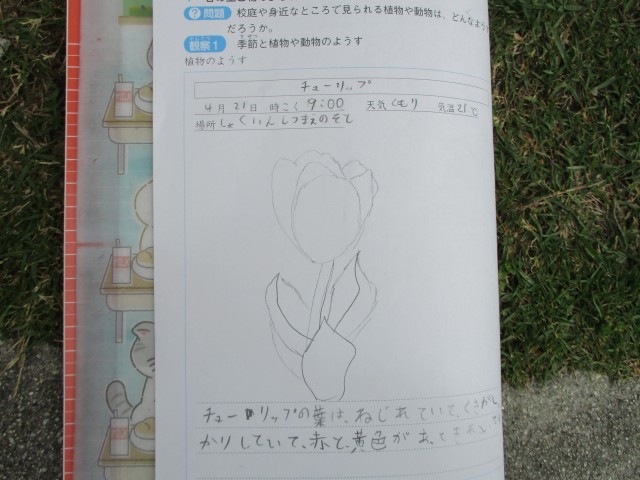 ?問題 校庭や身近なところで見られる植物や動物は、どんなよう
だろうか。
かんさつ
観察1 季節と植物や動物のようす
植物のようす
チューリップ
4月21日 時こく 9:00 天気 くもり 気温 ℃
場所 しょくいんしつまえのそと
チューリップの葉は、ねじれていて、くきがし
かりしていて、赤と、黄色が